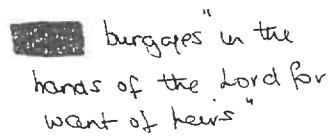 burgages "in the
hands of the Lord for
want of heirs"